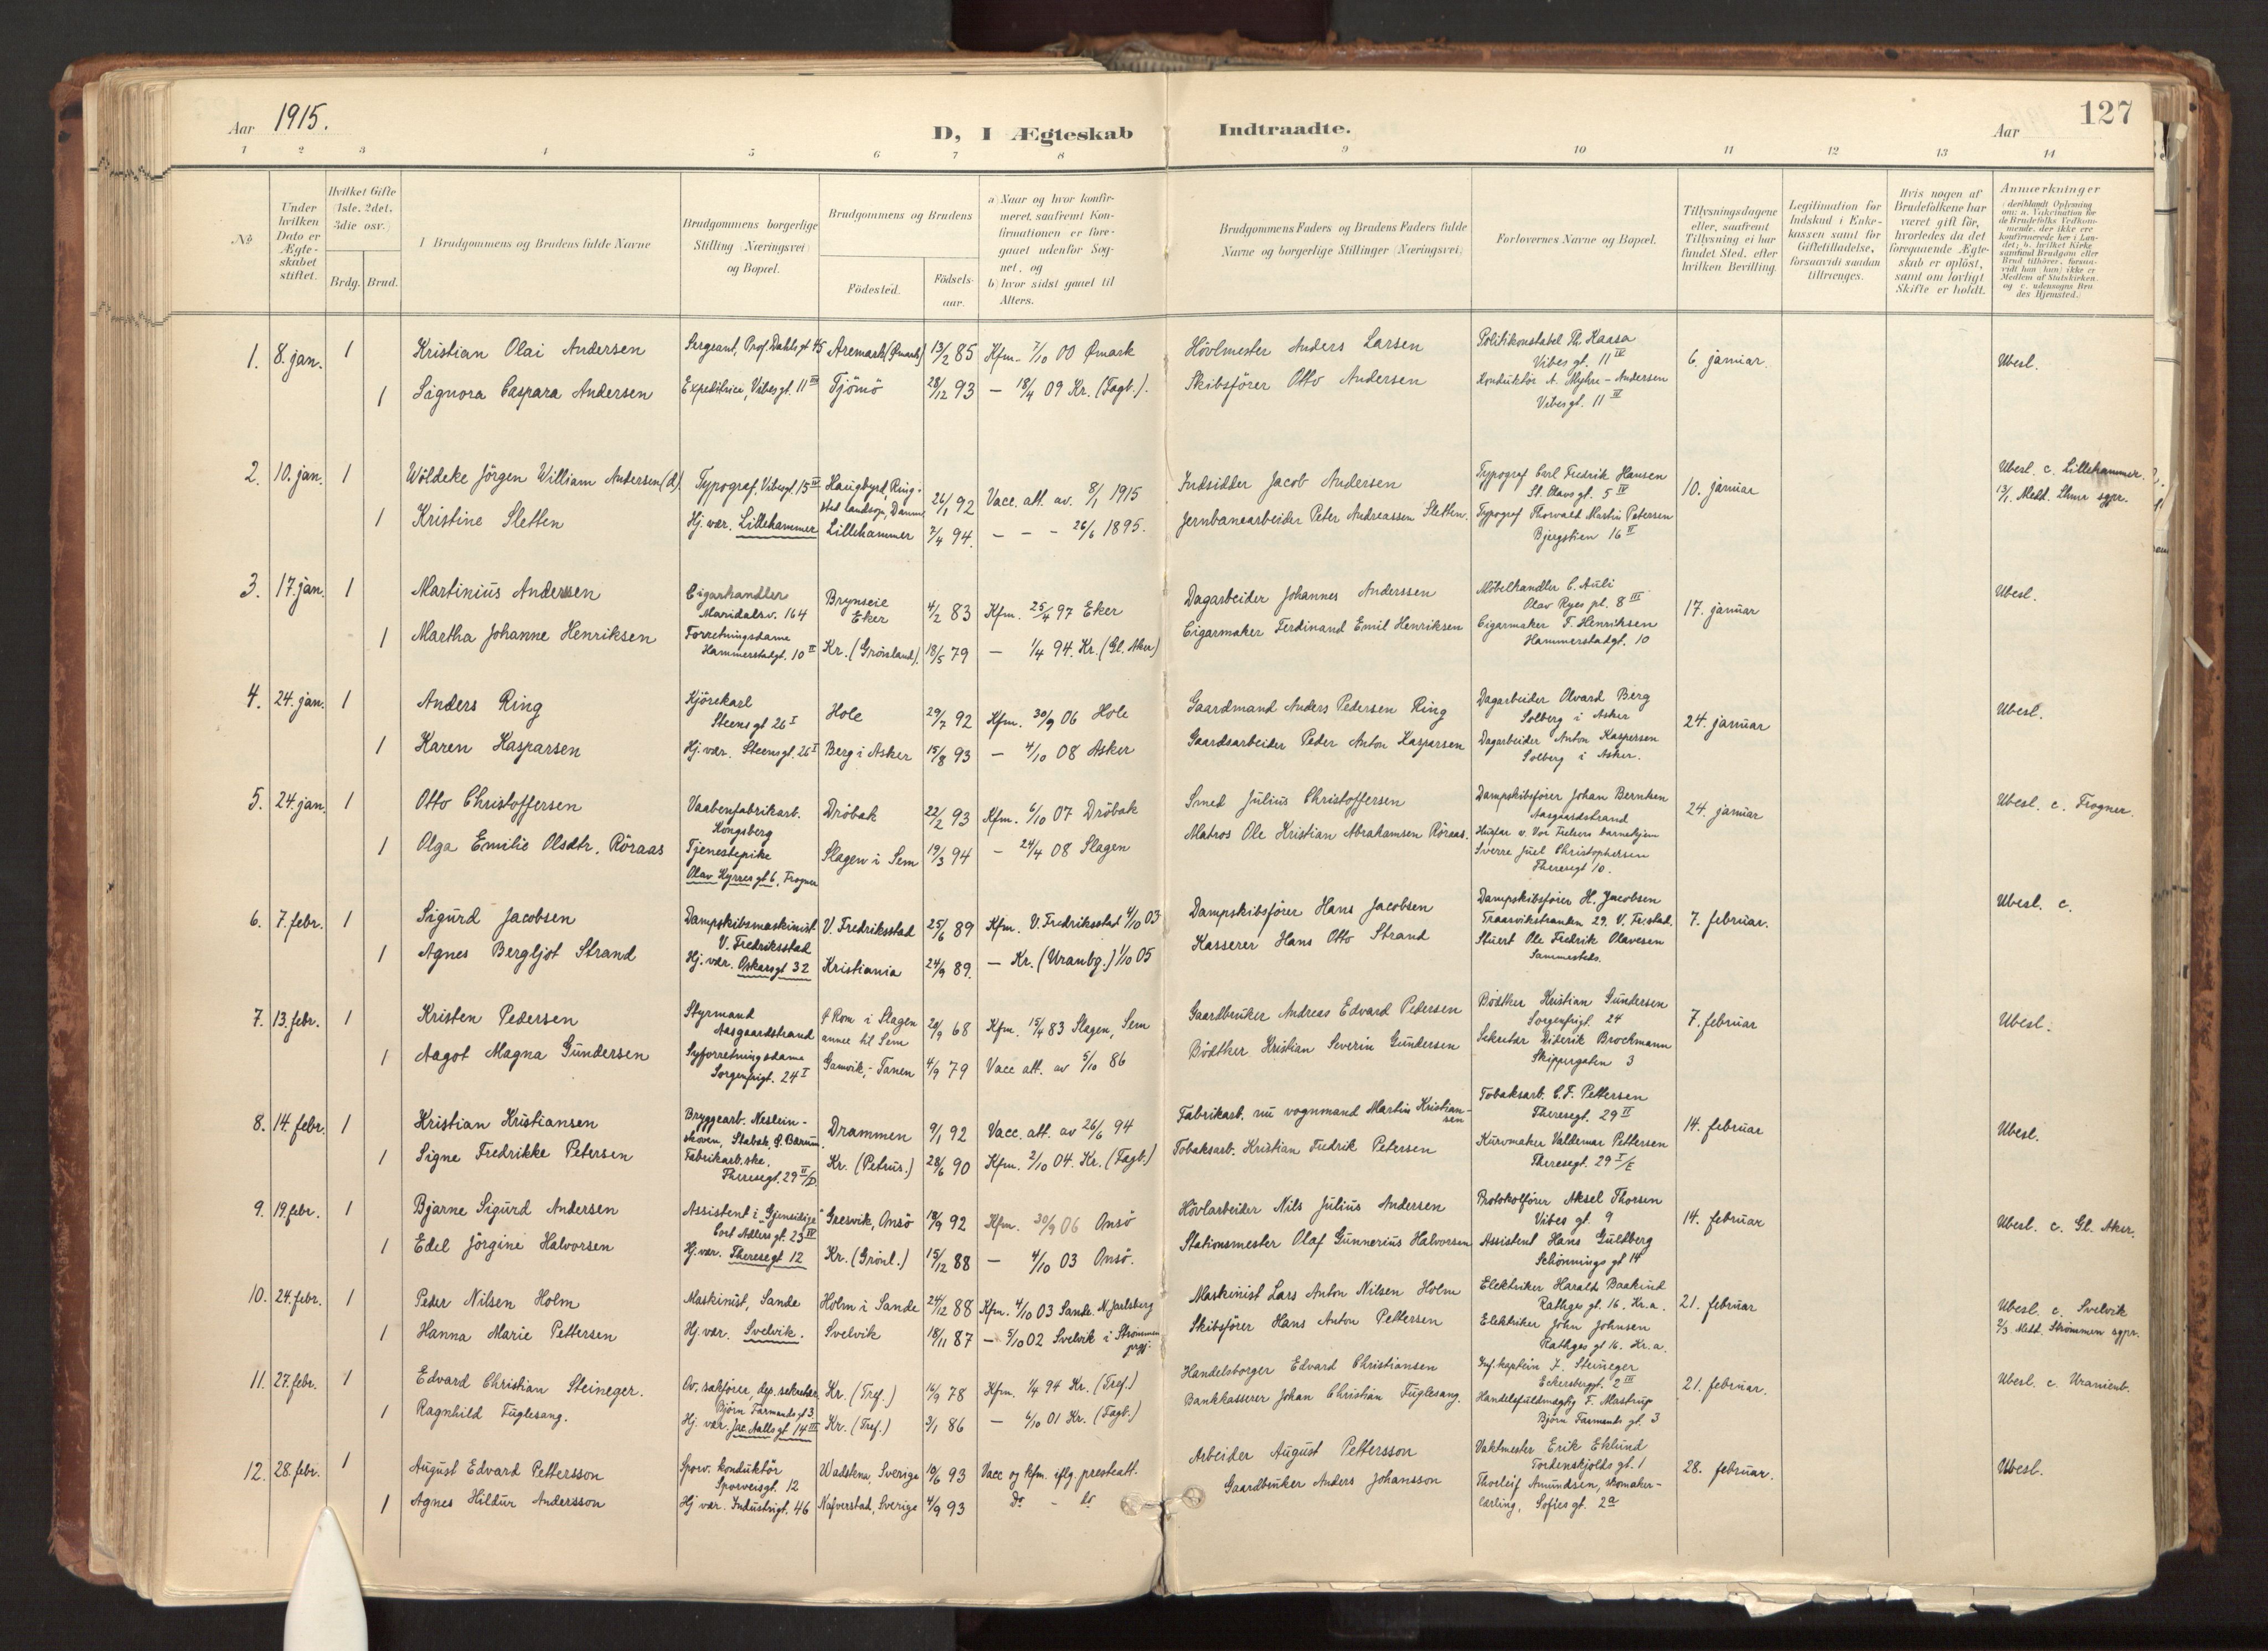 Aar 1915.
D, I Ægteskab Indtraadte.
Aar
127
1 2 3 4 5 6 7 8 9 10 11 12 13 14
No.
Under hvilken Dato er Ægteskabet stiftet.
Hvilket Gifte (1ste, 2det, 3die osv.)
Brdg. Brud.
Brudgommens og Brudens fulde Navne
Brudgommens borgerlige Stilling (Næringsvei) og Bopæl.
Brudgommens og Brudens
Födested.
Födselsaar.
a) Naar og hvor konfirmeret, saafremt Konfirmationen er foregaaet udenfor Sognet, og
b) hvor sidst gaaet til Alters.
Brudgommens Faders og Brudens Faders fulde Navne og borgerlige Stillinger (Næringsvei)
Forlovernes Navne og Bopæl.
Tillysningsdagene eller, saafremt Tillysning ei har fundet Sted, efter hvilken Bevilling.
Legitimation for Indskud i Enkekassen samt for Giftetilladelse, forsaavidt saadan tiltrænges.
Hvis nogen af Brudefolkene har været gift för, hvorledes da det foregaaende Ægteskab er oplöst, samt om lovligt Skifte er holdt.
Anmærkninger (deriblandt Oplysning om: a. Vakcination for de Brudefolks Vedkommende, der ikke ere konfirmerede her i Landet; b. hvilket Kirkesamfund Brudgom eller Brud tilhörer, forsaavidt han (hun) ikke er Medlem af Statskirken og c. udensogns Brudes Hjemsted.)
1. 8. jan. 1 Kristian Olai Andersen Sergeant, Prof. Dahls gt 45 Aremark (Ømark) 13/2 85 Kfm. 7/10 00 Ømark Hövlmester Anders Larsen Politikonstabel Th. Kaasa Vibes gt. 11 IV 6. januar. Ubesl.
1 Signora Caspara Andersen Expeditrice, Vibes gt. 11 III Tjömö 28/12 93 — 18/4 09 Kr. (Fagb.). Skibsförer Otto Andersen Konduktör A. Myhre-Andersen Vibes gt. 11 IV
2. 10. jan. 1 Wöldeke Jörgen William Andersen (d) Typograf, Vibesgt. 15 IV Haugbyrd, Ringsted landsogn, Danm. 26/1 92 Vacc. att. av. 8/1 1915 Indsidder Jacob Andersen Typograf Carl Fredrik Hansen St. Olavs gt. 5 IV 10. januar Ubesl. c. Lillehammer.
13/1. Medd. Lhmr sgpr.
1 Kristine Sletten Hj. vær. Lillehammer Lillehammer 7/4 94. — — - 26/6 1895. Jernbanearbeider Peter Andreassen Sletten. Typograf Thorvald Martin Petersen Bjergstien 16 II
3. 17. jan. 1 Martinius Andersen Cigarhandler Maridalsv. 164 Brynseie Eker 4/2 83 Kfm. 25/4 97 Eker Dagarbeider Johannes Anderssen Möbelhandler C. Auli Olav Ryes pl. 8 III 17. januar Ubesl.
1 Martha Johanne Henriksen Forretningsdame Hammerstadgt. 10 II Kr. (Grönland). 18/5 79 — 1/4 94. Kr. (Gl. Aker) Cigarmaker Ferdinand Emil Henriksen Cigarmaker F. Henriksen Hammerstadgt. 10
4. 24. jan. 1 Anders Ring Kjörekarl Steens gt 26 I Hole 29/7 92 Kfm. 30/9 06 Hole Gaardmand Anders Pedersen Ring Dagarbeider Olvard Berg Solberg i Asker 24. januar Ubesl.
1 Karen Kasparsen Hj. vær. Steens gt. 26 I Berg i Asker 15/8 93 — 4/10 08 Asker Gaardsarbeider Peder Anton Kasparsen Dagarbeider Anton Kaspersen Solberg i Asker.
5. 24. jan. 1 Otto Christoffersen Vaabenfabrikarb. Kongsberg Dröbak 22/2 93 Kfm. 6/10 07 Dröbak Smed Julius Christoffersen Dampskibsförer Johan Berntsen Aasgaardstrand 24. januar Ubesl. c. Frogner.
1 Olga Emilie Olsdtr. Röraas Tjenestepike Olav Kyrres gt 6, Frogner Slagen i Sem 19/3 94 — 24/4 08 Slagen Matros Ole Kristian Abrahamsen Röraas. Husfar v. Vor Frelsers barnehjem Sverre Juel Christophersen Theresegt 10.
6. 7. febr. 1 Sigurd Jacobsen Dampskibsmaskinist V. Fredriksstad V. Fredriksstad 25/6 89 Kfm. V. Fredriksstad 4/10 03 Dampskibsförer Hans Jacobsen Dampskibsförer H. Jacobsen Traarvikstranden 29. V. Fr.stad. 7. februar. Ubesl. c.
1 Agnes Bergljot Strand Hj. vær. Oskarsgt 32 Kristiania 24/9 89. — Kr. (Uranbg.) 1/10 05 Kasserer Hans Otto Strand Stuert Ole Fredrik Olavesen Sammesteds.
7. 13. febr. 1 Kristen Pedersen Styrmand Aasgaardstrand Rom i Slagen annex til Sem 20/9 68 Kfm. 15/4 83 Slagen, Sem Gaardbruker Andreas Edvard Pedersen Bödtker Kristian Gundersen Sorgenfrigt. 24 7. februar Ubesl.
1 Aagot Magna Gundersen Syforretningsdame Sorgenfrigt. 24 I Gamvik, Tanen 4/9 79 Vacc att. av 5/10 86 Bödtker Kristian Severin Gundersen Sekretær Diderik Brochmann Skippergaten 3
8. 14. febr. 1 Kristian Kristiansen Bryggearb. Nesleinskoven, Stabæk, Ø. Bærum. Drammen 9/1 92 Vacc. att. av 26/6 94 Fabrikarb. nu vognmand Martin Kristiansen Tobaksarb. C. F. Pettersen Theresegt. 29 II 14. februar Ubesl.
1 Signe Fredrikke Petersen Fabrikarb.ske. Theresegt. 29 II/D Kr. (Petrus.) 28/6 90 Kfm. 2/10 04. Kr. (Fagb.) Tobaksarb. Kristian Fredrik Petersen Kurvmaker Valdemar Pettersen Theresegt. 29 I/E
9. 19. febr. 1 Bjarne Sigurd Andersen Assistent i "Gjensidige" Cort Adlers gt. 23 IV Gresvik, Onsö 18/9 92 Kfm. 30/9 06 Onsö Hövlarbeider Nils Julius Andersen Protokolförer Aksel Thorsen Vibes gt. 9 14. februar Ubesl. c. Gl. Aker.
1 Edel Jörgine Halvorsen Hj. vær. Theresegt 12 Kr. (Grönl.) 15/12 88 — 4/10 03 Onsö. Stationsmester Olaf Gunnerius Halvorsen Assistent Hans Gultberg Schönnings gt 14
10. 24. febr. 1 Peder Nilsen Holm Maskinist, Sande Holm i Sande 24/12 88 Kfm. 4/10 03 Sande. N. Jarlsberg Maskinist Lars Anton Nilsen Holm Elektriker Harald Baakind Rathges gt. 16. Kr.a. 21. februar Ubesl. c. Svelvik
2/3. Medd. Strömmen sgpr.
1 Hanna Marie Pettersen Hj. vær. Svelvik. Svelvik 18/11 87 — 5/10 02 Svelvik i Strömmen prgj. Skibsförer Hans Anton Pettersen Elektriker John Johnsen Rathges gt 16. Kr.a.
11. 27. febr. 1 Edvard Christian Steineger. Ov. sakförer, dep. sekretær Björn Farmands gt 3 Kr. (Tref.) 14/9 78 Kfm. 1/4 94 Kr. (Tref.) Handelsborger Edvard Christiansen Inf. kaptein F. Steineger Eckersbergsgt. 2 III 21. februar. Ubesl. c. Uranienb.
1 Ragnhild Fuglesang. Hj. vær. Jac. Aalls gt 14 III Kr. (Tref.) 3/1 86 — 6/10 01 Kr. (Fagb.) Bankkasserer Johan Christian Fuglesang. Handelsfuldmægtig F. Mastrup Björn Farmands gt. 3
12. 28. febr. 1 August Edvard Pettersson Sporv. konduktör Sporveisgt. 12 Wadstena, Sverige 10/6 93 Vacc og kfm. iflg. presteatt. Arbeider August Pettersson Vaktmester Erik Eklund Tordenskjolds gt. 1 28. februar. Ubesl.
1 Agnes Hildur Andersson Hj vær. Industrigt. 46 Nafverstad, Sverige 4/9 93 Do - do Gaardbruker Anders Johansson Thorleif Amundsen, skomakerlærling, Sofies gt. 2a